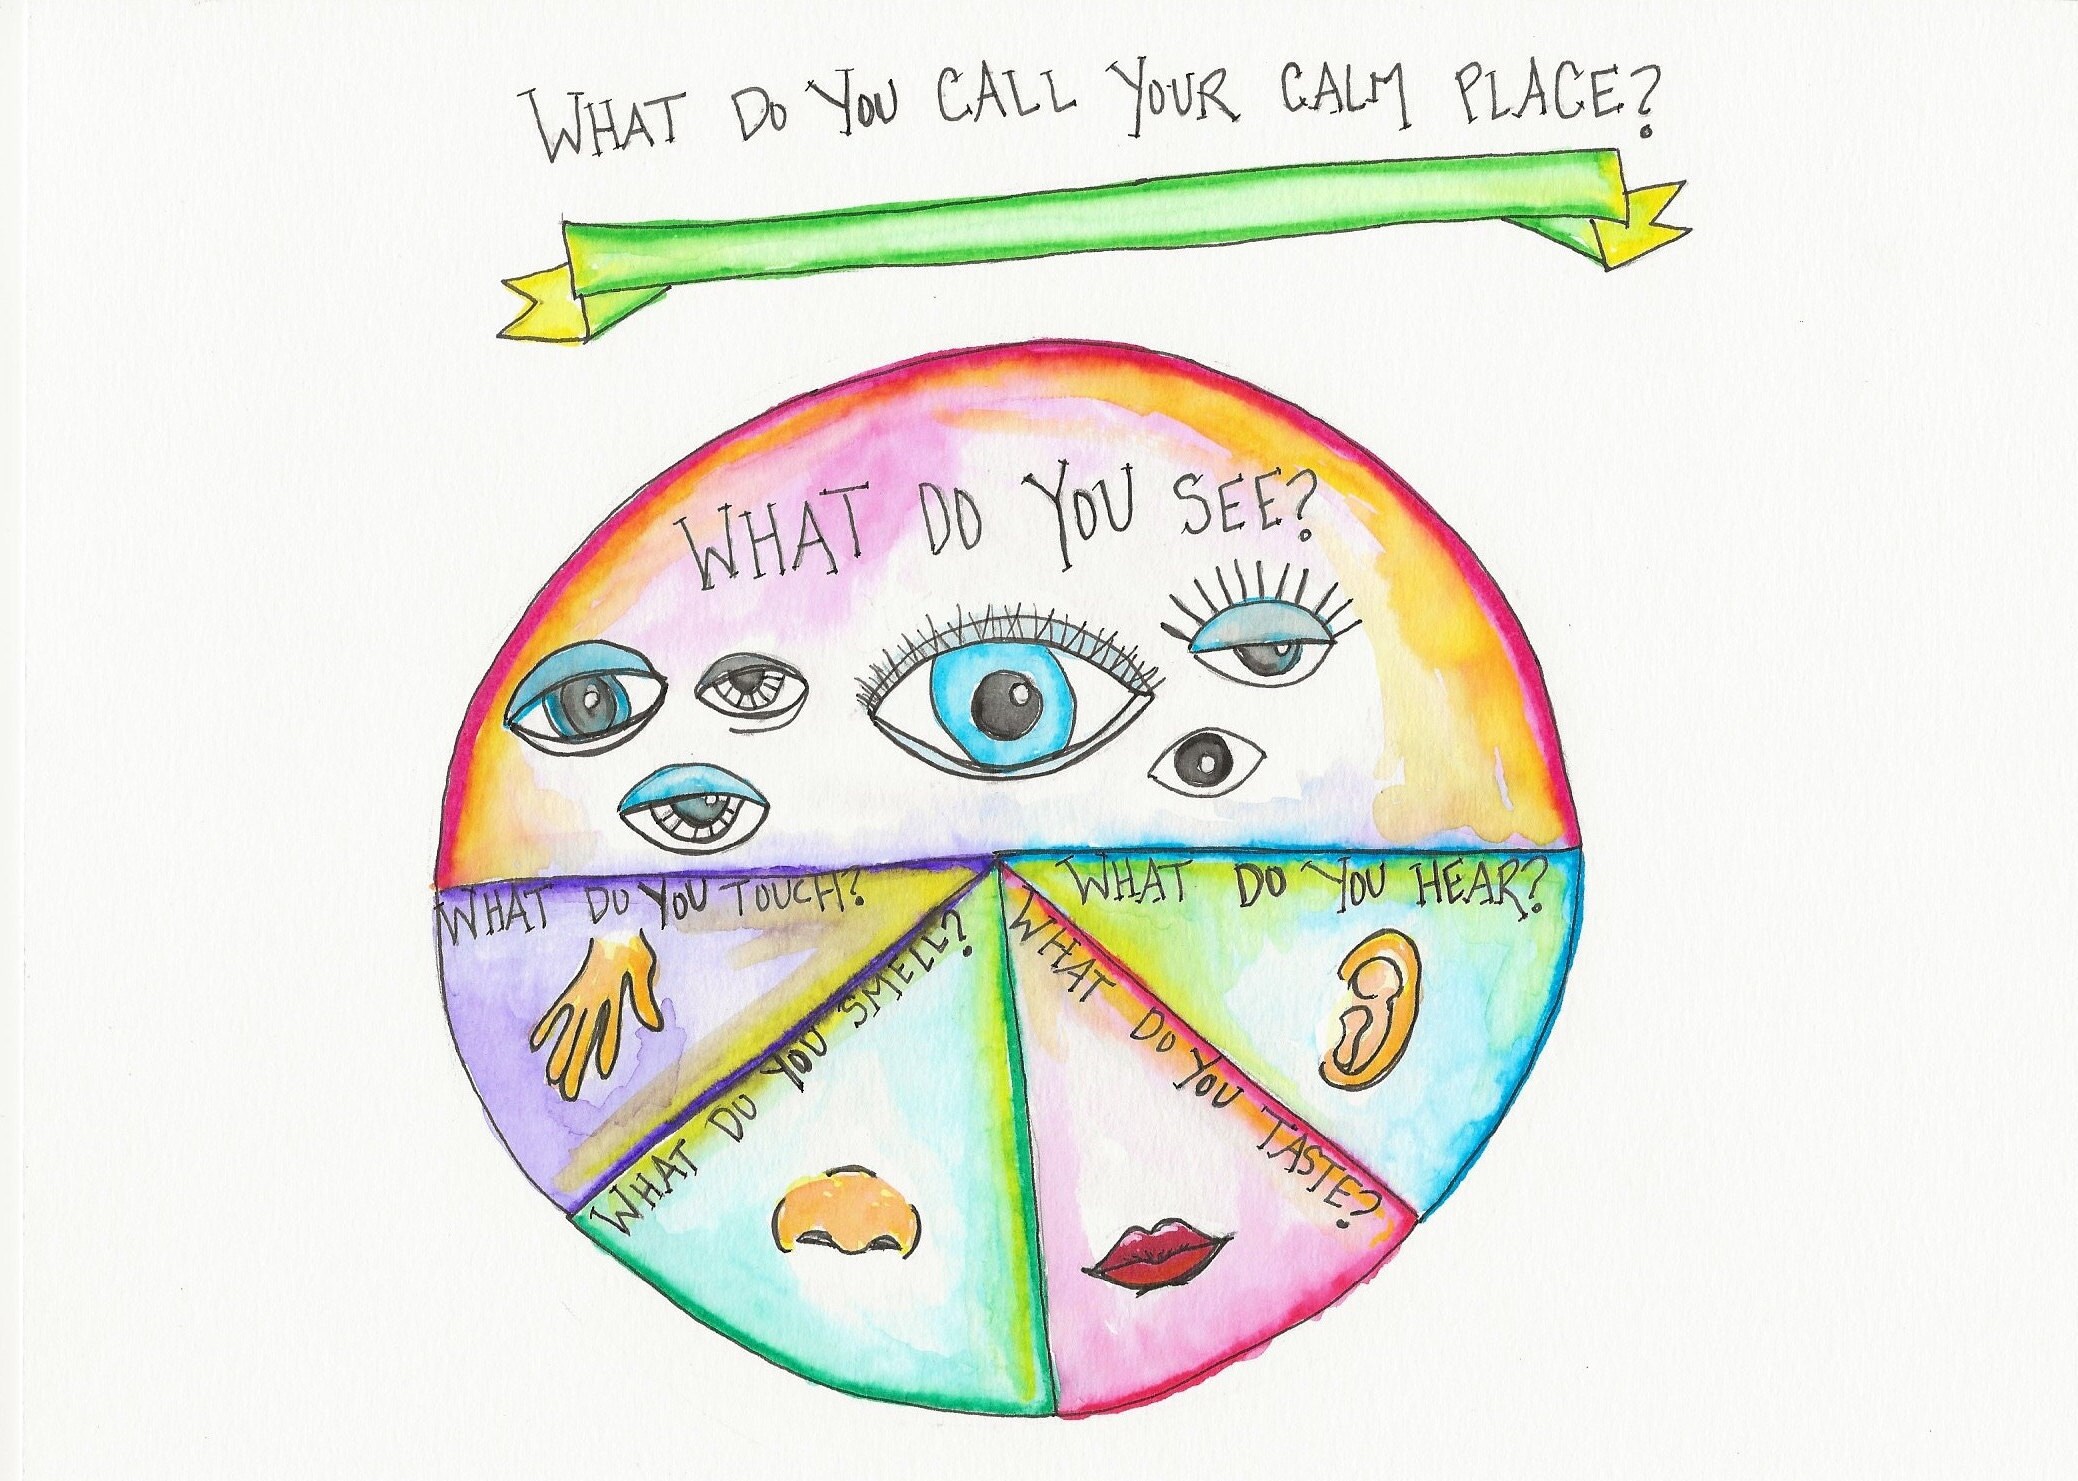 WHAT DO YOU CALL YOUR CALM PLACE?
WHAT DO YOU SEE?
WHAT DO YOU TOUCH?
WHAT DO YOU HEAR?
WHAT DO YOU SMELL?
WHAT DO YOU TASTE?